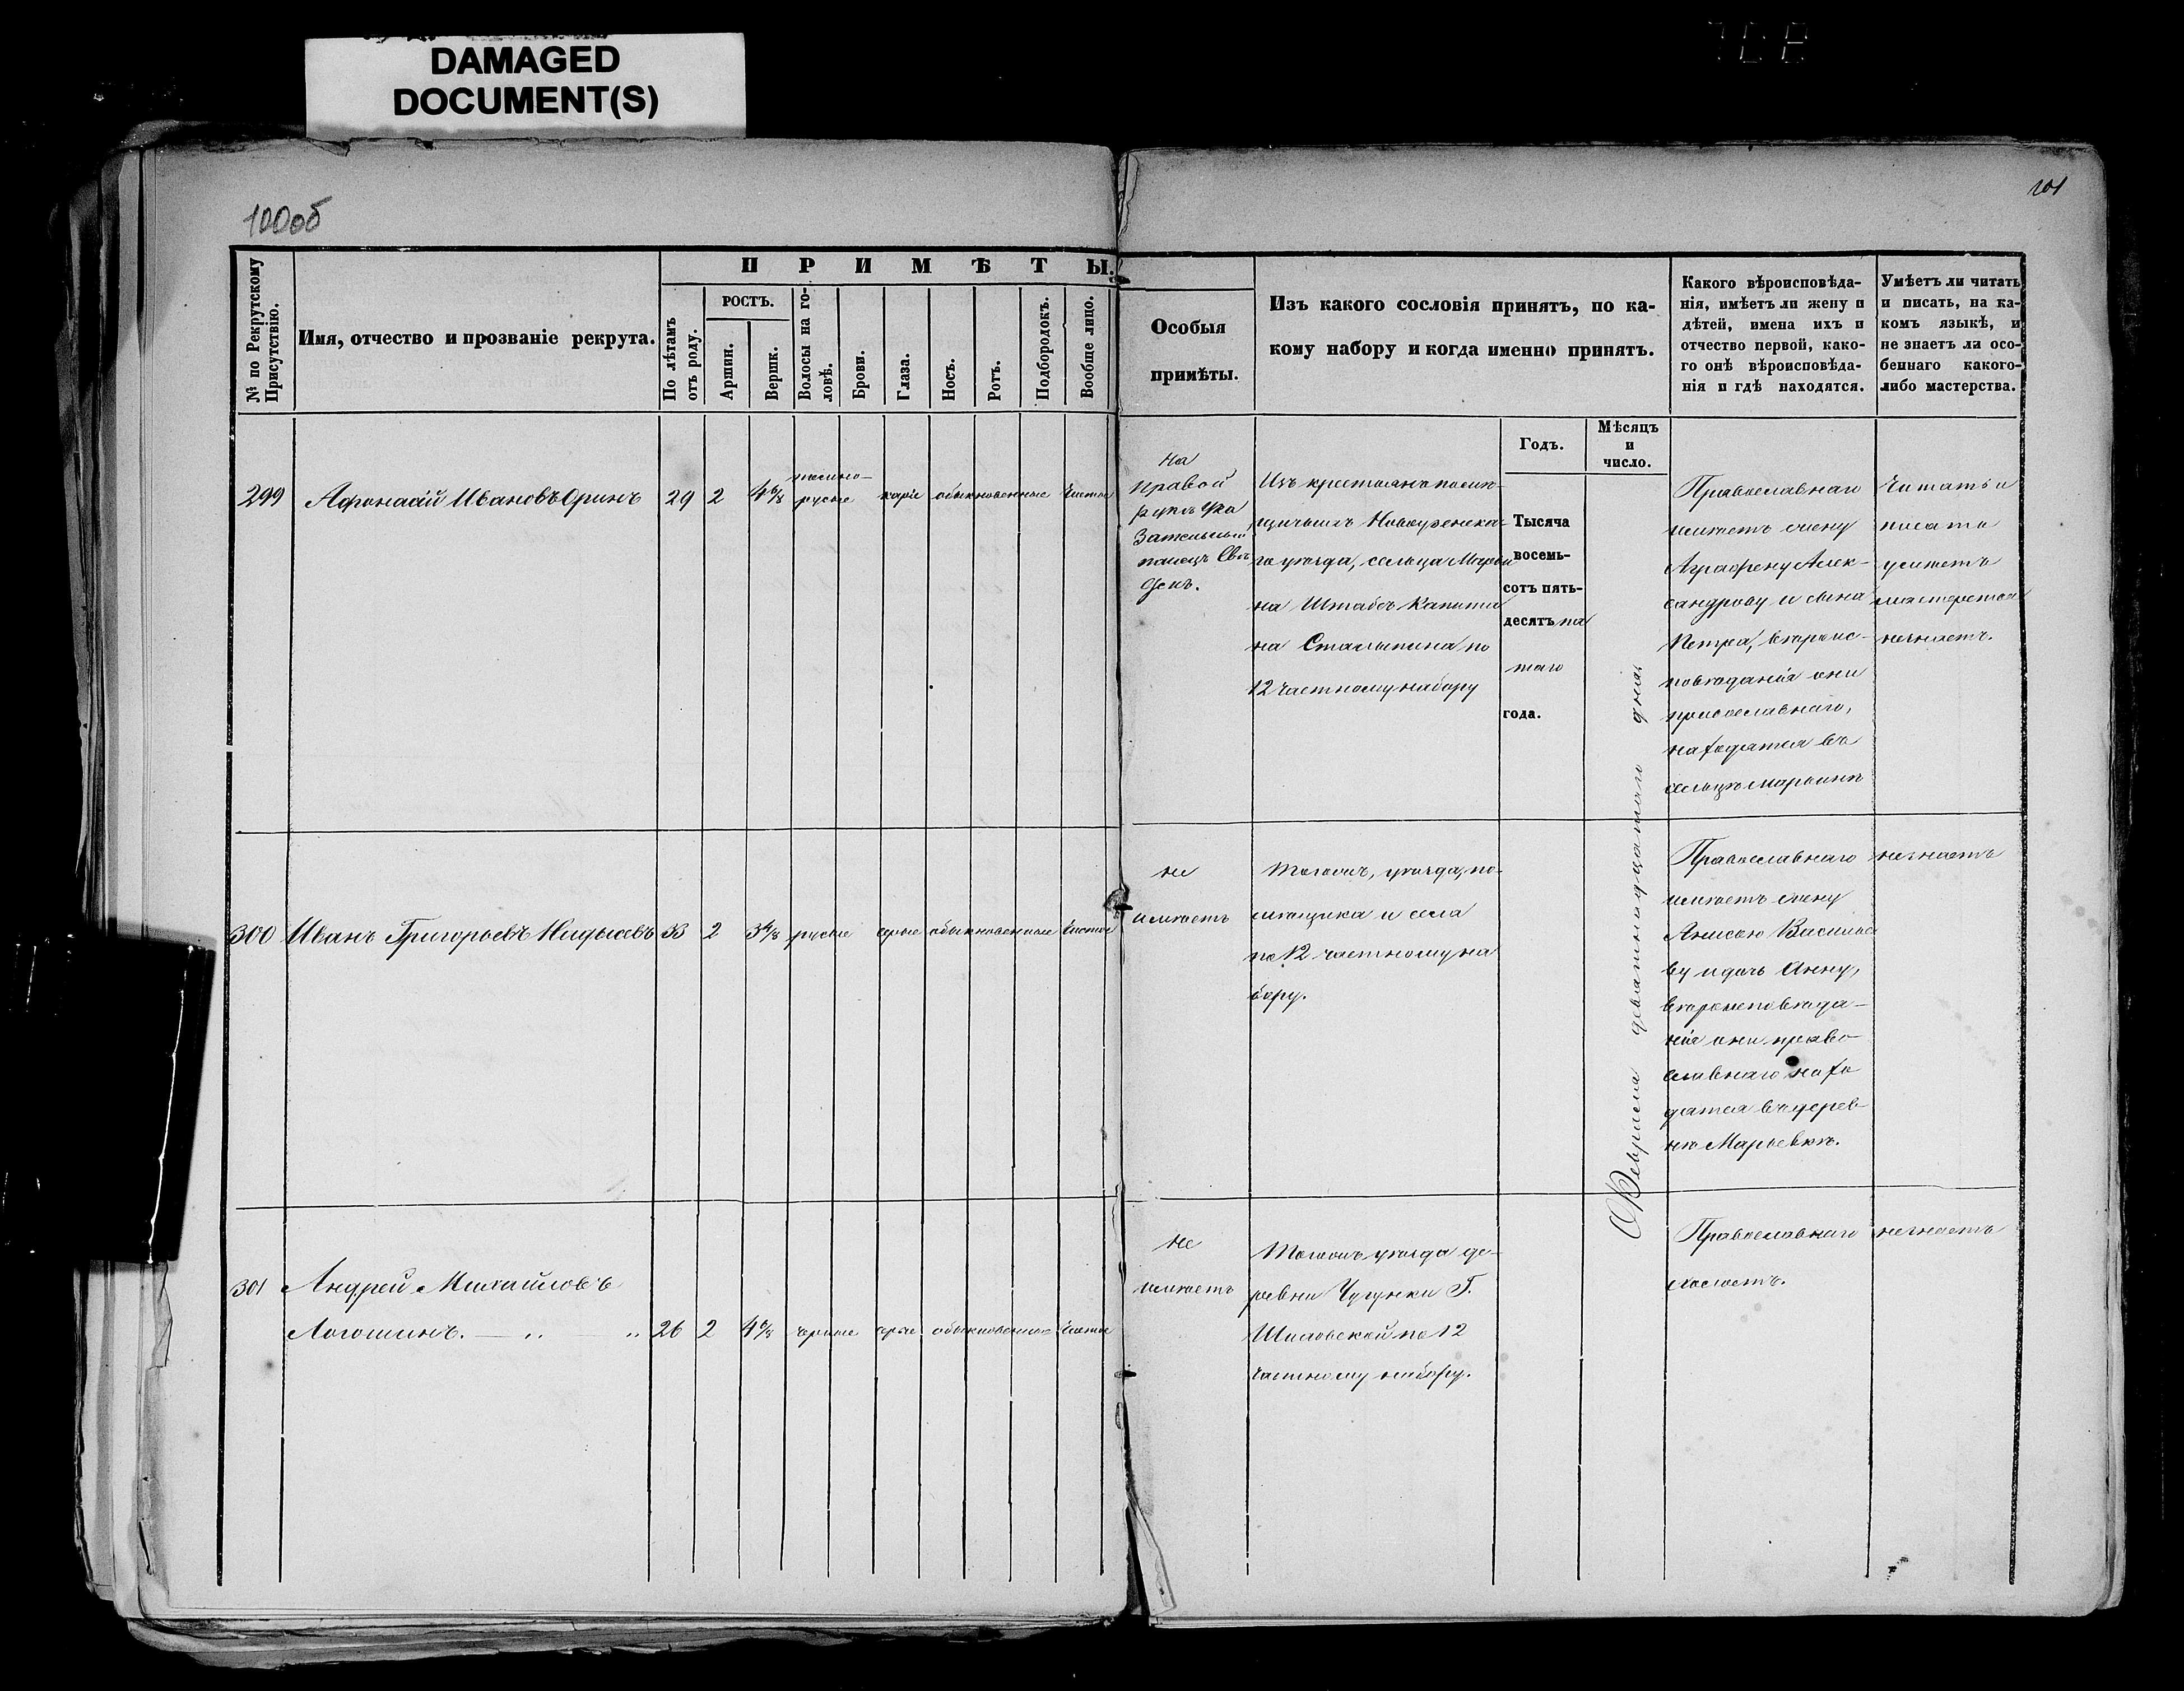 DAMAGED
DOCUMENT(S)
100об
101
№ по Рекрутскому
Присутствію.
Имя, отчество и прозваніе рекрута.
ПРИМѢТЫ.
По лѣтамъ
отъ роду.
РОСТЪ.
Аршин.
Вершк.
Волосы на го-
ловѣ.
Брови.
Глаза.
Носъ.
Ротъ.
Подбородокъ.
Вообще лицо.
Особыя
примѣты.
Изъ какого сословія принятъ, по ка-
кому набору и когда именно принятъ.
Какого вѣроисповѣда-
нія, имѣетъ ли жену и
дѣтей, имена ихъ и
отчество первой, како-
го онѣ вѣроисповѣда-
нія и гдѣ находятся.
Умѣетъ ли читать
и писать, на ка-
комъ языкѣ, и
не знаетъ ли осо-
беннаго какого-
либо мастерства.
Годъ.
Мѣсяцъ
и
число.
299 Афонасій Ивановъ Оринъ 29 2 4 6/8 темно-
русые каріе обыкновенные чистое
На
правой
рукѣ
палецъ
Изъ крестьянъ помѣ-
щичьихъ
го уѣзда, сельца Марьи
на Штабсъ Капита
на Столыпина по
12 частному набору
Тысяча
восемь-
сотъ пять-
десятъ пя
таго
года.
Февраля девятнадцатаго дня
Православнаго
имѣетъ жену
Аграфену Алек-
сандрову и сына
Петра, вѣроис-
повѣданія они
православнаго,
находятся въ
сельцѣ Марьинѣ
Читать и
писать
умѣетъ
мастерства
незнаетъ.
300 Иванъ Григорьевъ 33 2 3 4/8 русые серые обыкновенные чистое
не
имѣетъ
Тогожъ, уѣзда, по-
мѣщика и села
по 12 частному на
бору.
Православнаго
имѣетъ жену
Анисью Василье
ву и дочь Анну,
вѣроисповѣда-
нія они право-
славнаго нахо
дятся въ дерев-
нѣ Марьевкѣ.
незнаетъ
301 Андрей Михайловъ
Логошинъ. 26 2 4 6/8 черные серые обыкновенное чистое
не
имѣетъ
Тогожъ уѣзда де-
ревни Чугунки Г.
Шиловской по 12
частному набору.
Православнаго
холостъ.
незнаетъ